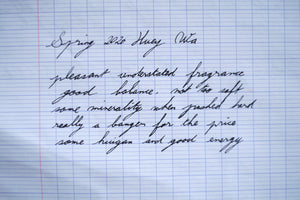 Spring 2020 Huey Wa
pleasant understated fragrance
good balance. not too soft
some minerality when pushed hard
really a banger for the price
some huigan and good energy